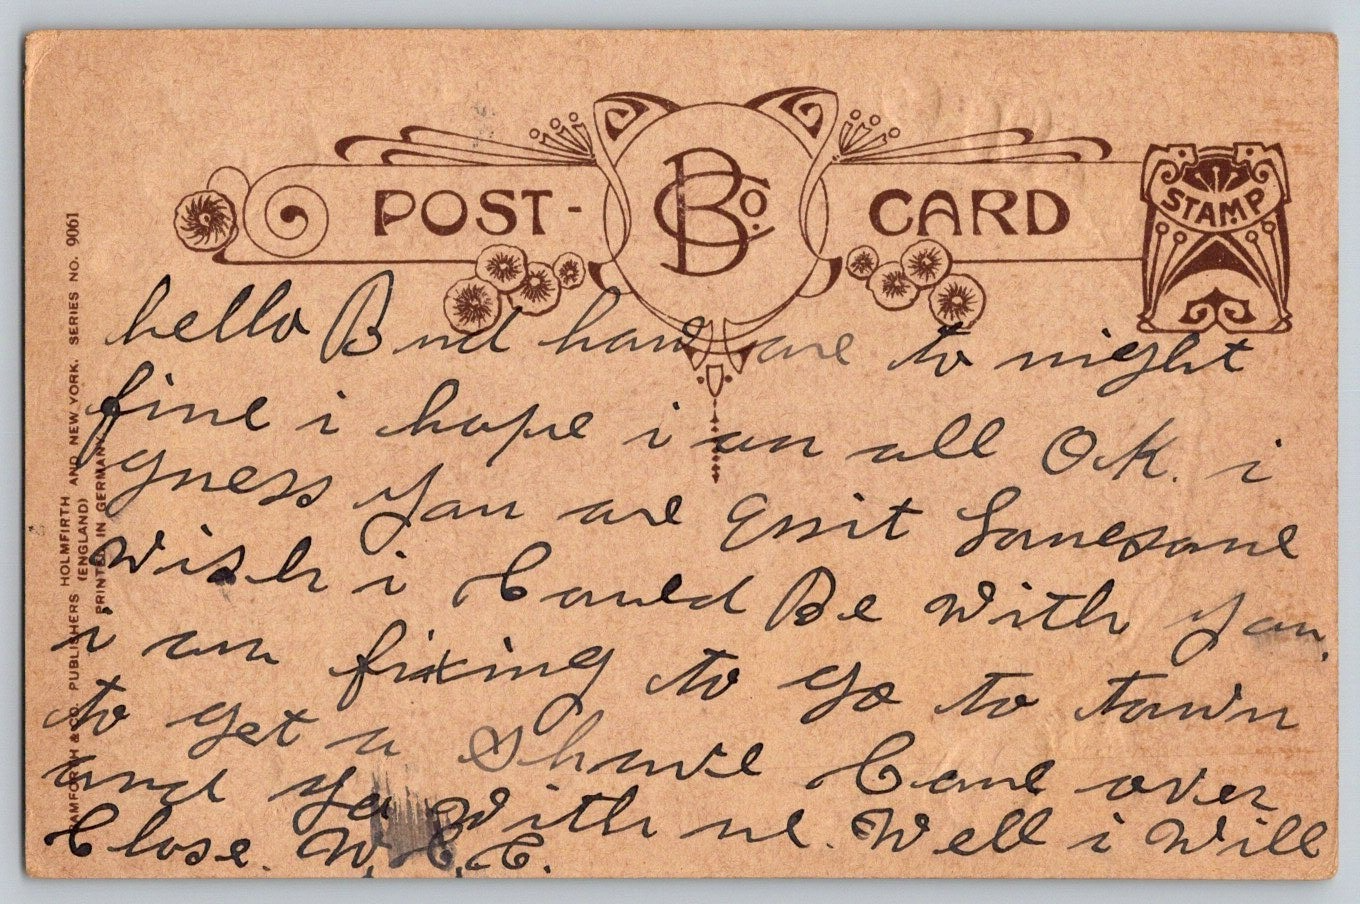 POST - CARD
B Co.
STAMP
BAMFORTH & CO. PUBLISHERS HOLMFIRTH AND NEW YORK. SERIES NO. 9061
(ENGLAND)
PRINTED IN GERMANY
hello Bud how are to night
fine i hope i an all O.K. i
guess you are Lonesome
Wish i Could Be With you.
i am fixing to go to town
to get a Shave Come over
and go With me. Well i Will
Close. W.C.C.